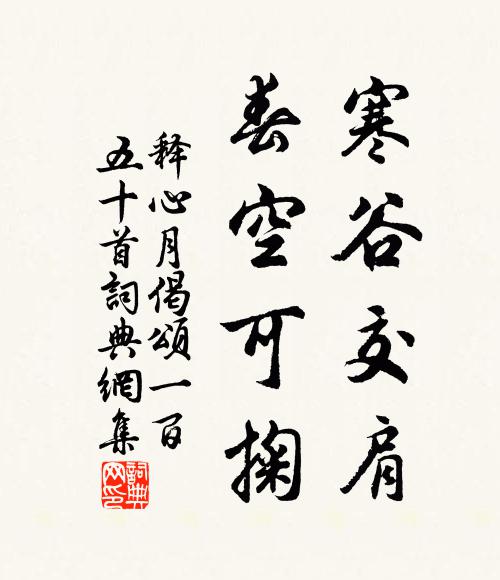 寒谷交肩
春空可掬
释心月偈頌一百
五十首詞典網集
詞典
网印